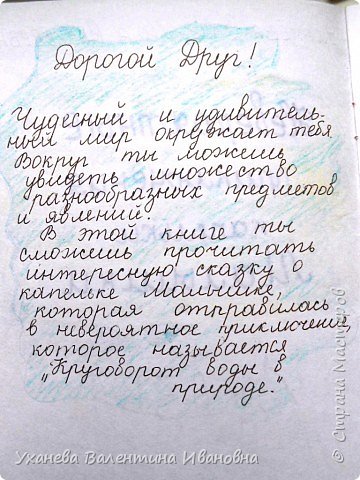 Дорогой Друг!
Чудесный и удивитель-
ный мир окружает тебя
Вокруг ты можешь
увидеть множество
разнообразных предметов
и явлений.
В этой книге ты
сможешь прочитать
интересную сказку о
капельке Малышке,
которая отправилась
в невероятное приключение
которое называется
„Круговорот воды в
природе."
Уханева Валентина Ивановна
© Страна Мастеров